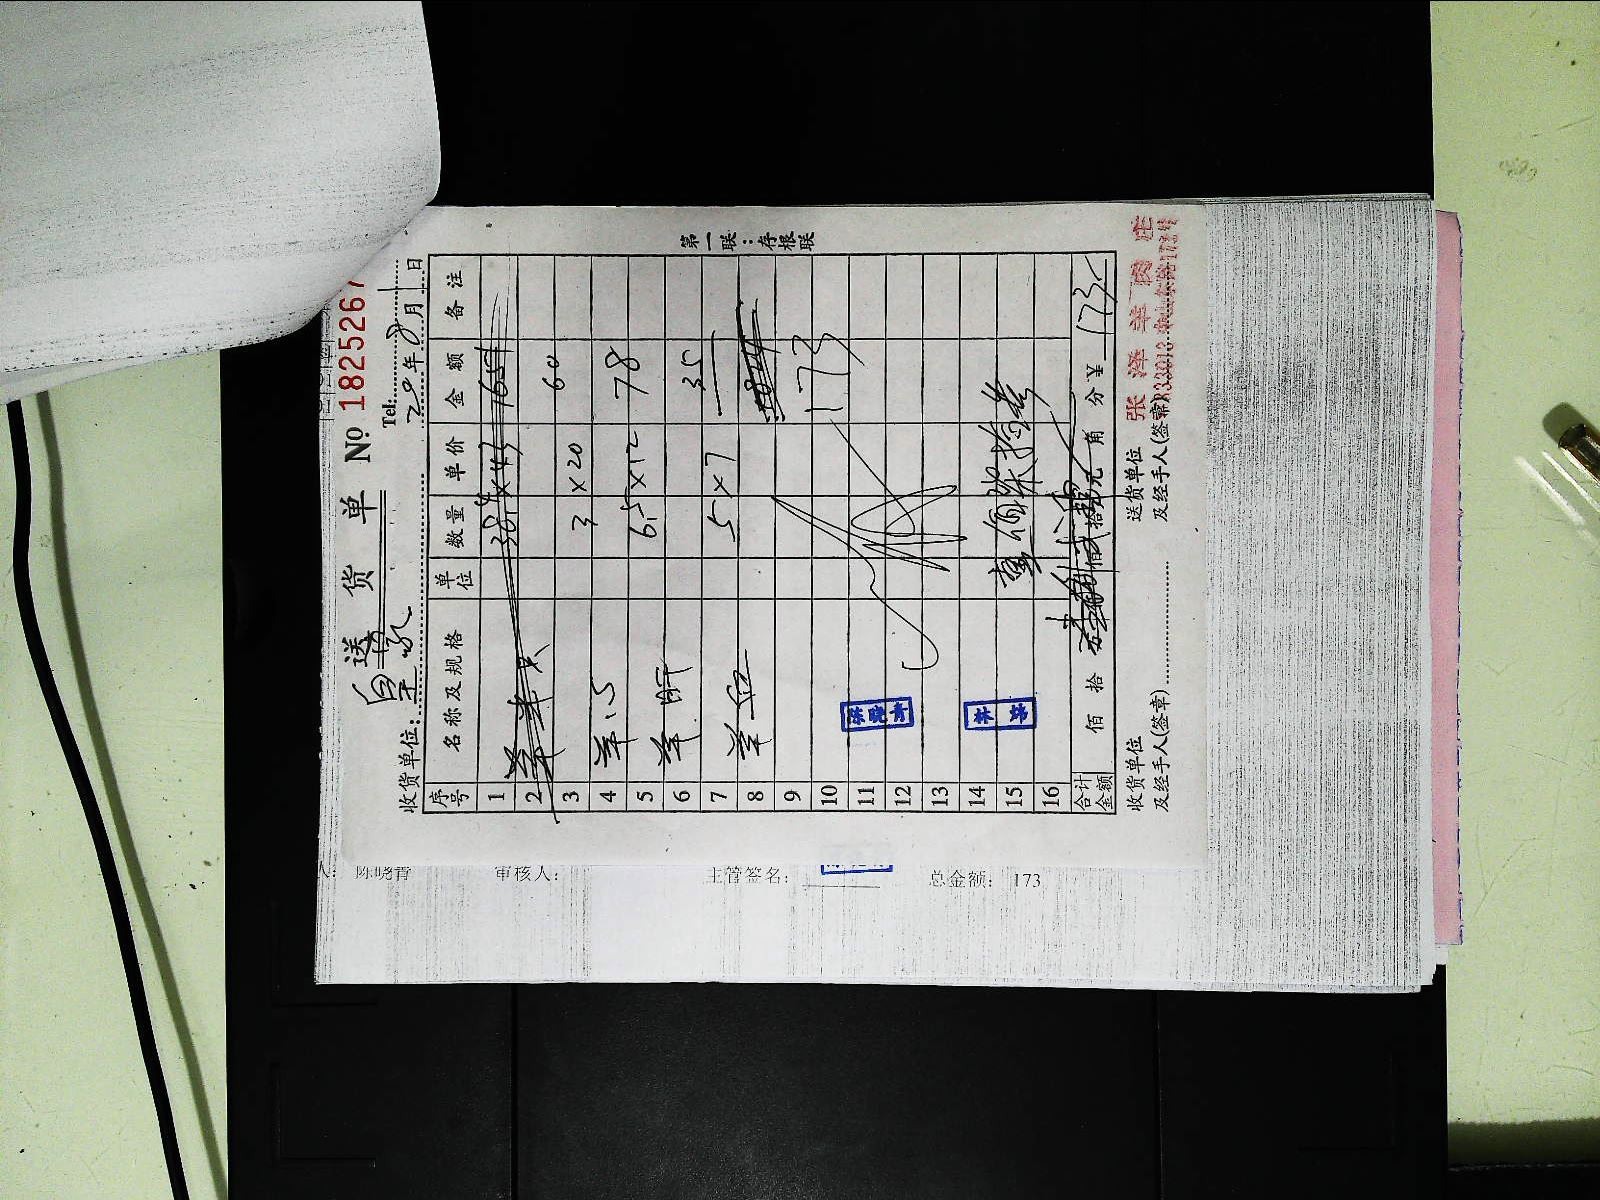 送货单 № 1825267
Tel:
收货单位: 皇家
20年8月1日
序号 名称及规格 单位 数量 单价 金额 备注
1 38.4×43 1651
2 羊
3 3×20 60
4 羊心
5 6.5×12 78
6 羊肝
7 5×7 35
8 羊血
9 173
10
11 陈晓青
12
13
14 林 炜
15 壹佰柒拾叁
16
合计金额 佰 拾 元 角 分 ¥ 173
收货单位及经手人(签章) 送货单位及经手人(签章)
张泽羊肉庄
第一联:存根联
陈晓青 审核人: 主管签名: 总金额: 173